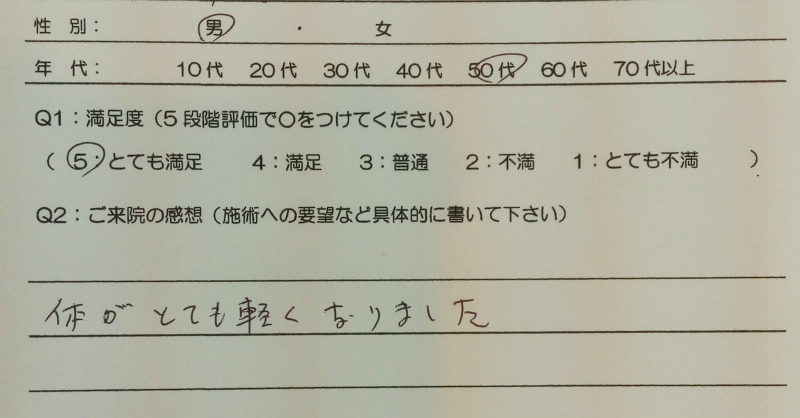 性 別： 男 ・ 女
年 代： 10代 20代 30代 40代 50代 60代 70代以上
Q1：満足度（5段階評価で〇をつけてください）
（ 5：とても満足 4：満足 3：普通 2：不満 1：とても不満 ）
Q2：ご来院の感想（施術への要望など具体的に書いて下さい）
体がとても軽くなりました